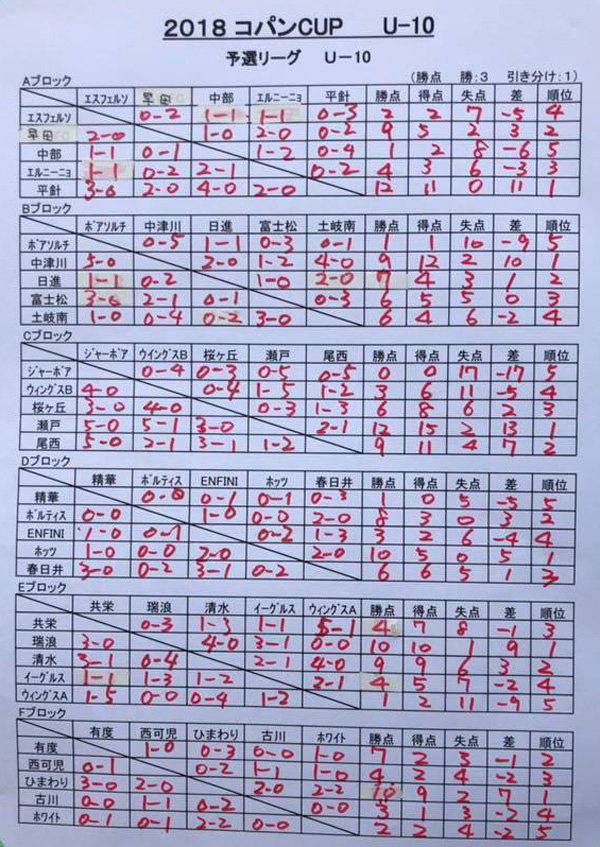 2018 コパンCUP U-10
予選リーグ U-10
Aブロック (勝点 勝:3 引き分け:1)
エスフェルソ 早田 中部 エルニーニョ 平針 勝点 得点 失点 差 順位
エスフェルソ 0-2 1-1 1-1 0-3 2 2 7 -5 4
早田 2-0 1-0 2-0 0-2 9 5 2 3 2
中部 1-1 0-1 1-2 0-4 1 2 8 -6 5
エルニーニョ 1-1 0-2 2-1 0-2 4 3 6 -3 3
平針 3-0 2-0 4-0 2-0 12 11 0 11 1
Bブロック
ボアソルチ 中津川 日進 富士松 土岐南 勝点 得点 失点 差 順位
ボアソルチ 0-5 1-1 0-3 0-1 1 1 10 -9 5
中津川 5-0 2-0 1-2 4-0 9 12 2 10 1
日進 1-1 0-2 1-0 2-0 7 4 3 1 2
富士松 3-0 2-1 0-1 0-3 6 5 5 0 3
土岐南 1-0 0-4 0-2 3-0 6 4 6 -2 4
Cブロック
ジャーボア ウイングスB 桜ヶ丘 瀬戸 尾西 勝点 得点 失点 差 順位
ジャーボア 0-4 0-3 0-5 0-5 0 0 17 -17 5
ウィングスB 4-0 0-4 1-5 1-2 3 6 11 -5 4
桜ヶ丘 3-0 4-0 0-3 1-3 6 8 6 2 3
瀬戸 5-0 5-1 3-0 2-1 12 15 2 13 1
尾西 5-0 2-1 3-1 1-2 9 11 4 7 2
Dブロック
精華 ボルティス ENFINI ホッツ 春日井 勝点 得点 失点 差 順位
精華 0-0 0-1 0-1 0-3 1 0 5 -5 5
ボルティス 0-0 1-0 0-0 2-0 8 3 0 3 2
ENFINI 1-0 0-1 0-2 1-3 3 2 6 -4 4
ホッツ 1-0 0-0 2-0 2-0 10 5 0 5 1
春日井 3-0 0-2 3-1 0-2 6 6 5 1 3
Eブロック
共栄 瑞浪 清水 イーグルス ウィングスA 勝点 得点 失点 差 順位
共栄 0-3 1-3 1-1 5-1 4 7 8 -1 3
瑞浪 3-0 4-0 3-1 0-0 10 10 1 9 1
清水 3-1 0-4 2-1 4-0 9 9 6 3 2
イーグルス 1-1 1-3 1-2 2-1 4 5 7 -2 4
ウィングスA 1-5 0-0 0-4 1-2 1 2 11 -9 5
Fブロック
有度 西可児 ひまわり 古川 ホワイト 勝点 得点 失点 差 順位
有度 1-0 0-3 0-0 1-0 7 2 3 -1 2
西可児 0-1 0-2 1-1 1-0 4 2 4 -2 3
ひまわり 3-0 2-0 2-0 2-2 10 9 2 7 1
古川 0-0 1-1 0-2 0-0 3 1 3 -2 4
ホワイト 0-1 0-1 2-2 0-0 2 2 4 -2 5